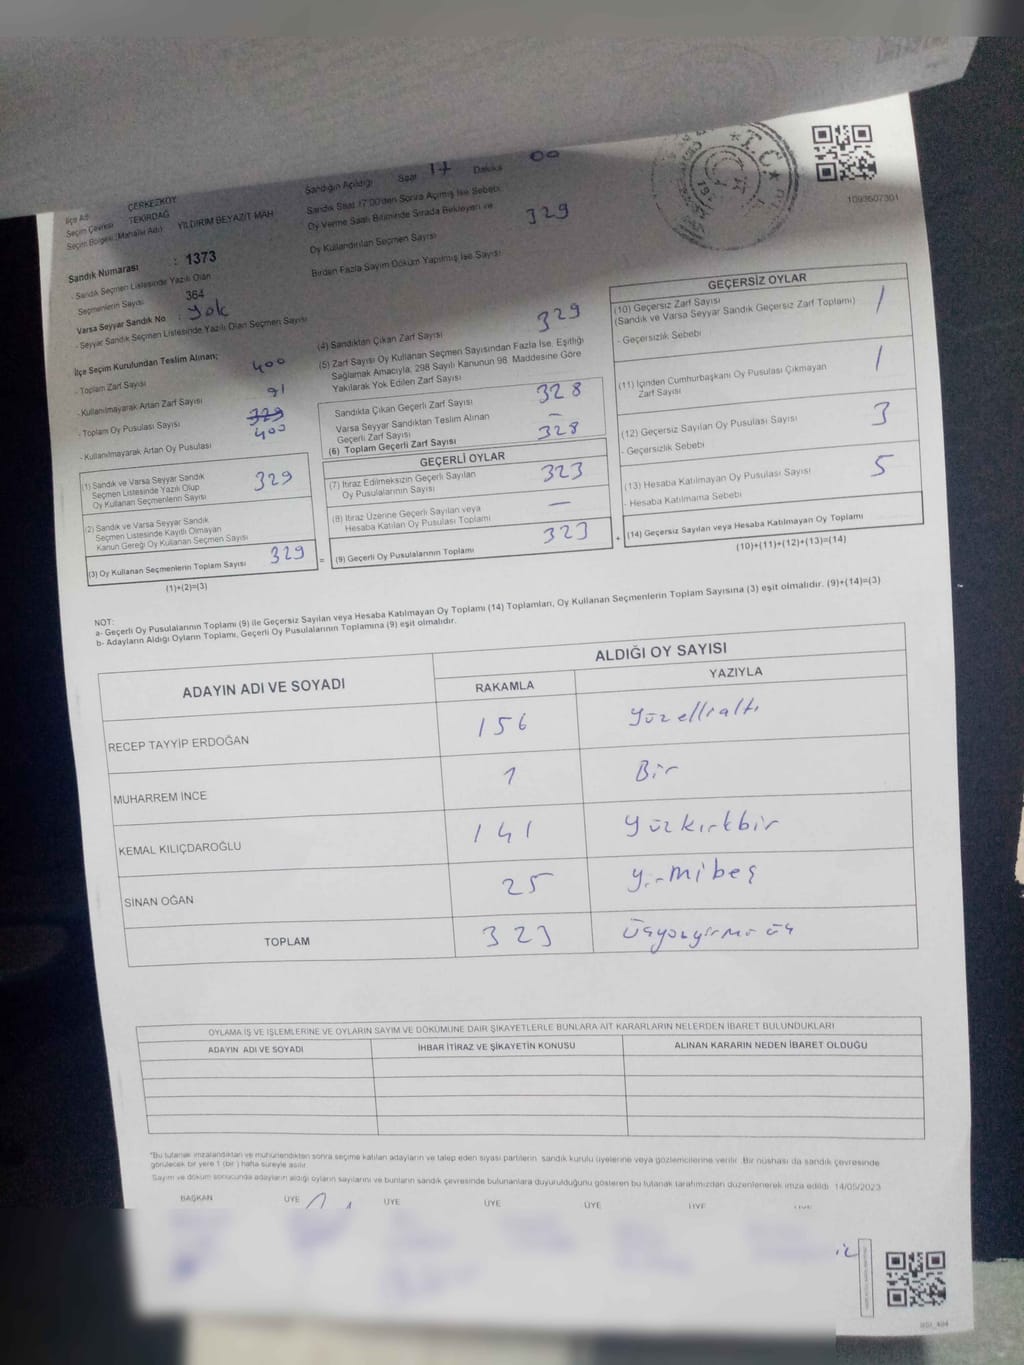 İlçe Adı ÇERKEZKÖY
Seçim Çevresi TEKİRDAĞ
Seçim Bölgesi (Mahalle Adı) YILDIRIM BEYAZIT MAH
Sandık Numarası : 1373
- Sandık Seçmen Listesinde Yazılı Olan
Seçmenlerin Sayısı 364
Varsa Seyyar Sandık No : yok
- Seyyar Sandık Seçmen Listesinde Yazılı Olan Seçmen Sayısı
İlçe Seçim Kurulundan Teslim Alınan;
- Toplam Zarf Sayısı 400
- Kullanılmayarak Artan Zarf Sayısı 91
- Toplam Oy Pusulası Sayısı 329 400
- Kullanılmayarak Artan Oy Pusulası
(1) Sandık ve Varsa Seyyar Sandık
Seçmen Listesinde Yazılı Olup
Oy Kullanan Seçmenlerin Sayısı 329
(2) Sandık ve Varsa Seyyar Sandık
Seçmen Listesinde Kayıtlı Olmayan
Kanun Gereği Oy Kullanan Seçmen Sayısı
(3) Oy Kullanan Seçmenlerin Toplam Sayısı 329 =
(1)+(2)=(3)
Sandığın Açıldığı Saat 17 Dakika 00
Sandık Saat 17:00'den Sonra Açılmış İse Sebebi
Oy Verme Saati Bitiminde Sırada Bekleyen ve
Oy Kullandırılan Seçmen Sayısı 329
Birden Fazla Sayım Döküm Yapılmış İse Sayısı
(4) Sandıktan Çıkan Zarf Sayısı 329
(5) Zarf Sayısı Oy Kullanan Seçmen Sayısından Fazla İse, Eşitliği
Sağlamak Amacıyla, 298 Sayılı Kanunun 98. Maddesine Göre
Yakılarak Yok Edilen Zarf Sayısı
Sandıkta Çıkan Geçerli Zarf Sayısı 328
Varsa Seyyar Sandıktan Teslim Alınan
Geçerli Zarf Sayısı –
(6) Toplam Geçerli Zarf Sayısı 328
GEÇERLİ OYLAR
(7) İtiraz Edilmeksizin Geçerli Sayılan
Oy Pusulalarının Sayısı 323
(8) İtiraz Üzerine Geçerli Sayılan veya
Hesaba Katılan Oy Pusulası Toplamı –
(9) Geçerli Oy Pusulalarının Toplamı 323 +
T.C.
1093607301
GEÇERSİZ OYLAR
(10) Geçersiz Zarf Sayısı
(Sandık ve Varsa Seyyar Sandık Geçersiz Zarf Toplamı) 1
- Geçersizlik Sebebi
(11) İçinden Cumhurbaşkanı Oy Pusulası Çıkmayan
Zarf Sayısı 1
(12) Geçersiz Sayılan Oy Pusulası Sayısı 3
- Geçersizlik Sebebi
(13) Hesaba Katılmayan Oy Pusulası Sayısı 5
- Hesaba Katılmama Sebebi
(14) Geçersiz Sayılan veya Hesaba Katılmayan Oy Toplamı
(10)+(11)+(12)+(13)=(14)
NOT:
a- Geçerli Oy Pusulalarının Toplamı (9) ile Geçersiz Sayılan veya Hesaba Katılmayan Oy Toplamı (14) Toplamları, Oy Kullanan Seçmenlerin Toplam Sayısına (3) eşit olmalıdır. (9)+(14)=(3)
b- Adayların Aldığı Oyların Toplamı, Geçerli Oy Pusulalarının Toplamına (9) eşit olmalıdır.
ADAYIN ADI VE SOYADI ALDIĞI OY SAYISI
RAKAMLA YAZIYLA
RECEP TAYYİP ERDOĞAN 156 Yüzellialtı
MUHARREM İNCE 1 Bir
KEMAL KILIÇDAROĞLU 141 yüzkırkbir
SİNAN OĞAN 25 yirmibeş
TOPLAM 323 üçyüzyirmi üç
OYLAMA İŞ VE İŞLEMLERİNE VE OYLARIN SAYIM VE DÖKÜMÜNE DAİR ŞİKAYETLERLE BUNLARA AİT KARARLARIN NELERDEN İBARET BULUNDUKLARI
ADAYIN ADI VE SOYADI İHBAR İTİRAZ VE ŞİKAYETİN KONUSU ALINAN KARARIN NEDEN İBARET OLDUĞU
"Bu tutanak imzalandıktan ve mühürlendikten sonra seçime katılan adayların ve talep eden siyasi partilerin sandık kurulu üyelerine veya gözlemcilerine verilir. Bir nüshası da sandık çevresinde
görülecek bir yere 1 (bir) hafta süreyle asılır.
Sayım ve döküm sonucunda adayların aldığı oyların sayılarını ve bunların sandık çevresinde bulunanlara duyurulduğunu gösteren bu tutanak tarafımızdan düzenlenerek imza edildi. 14/05/2023
BAŞKAN ÜYE ÜYE ÜYE ÜYE ÜYE ÜYE